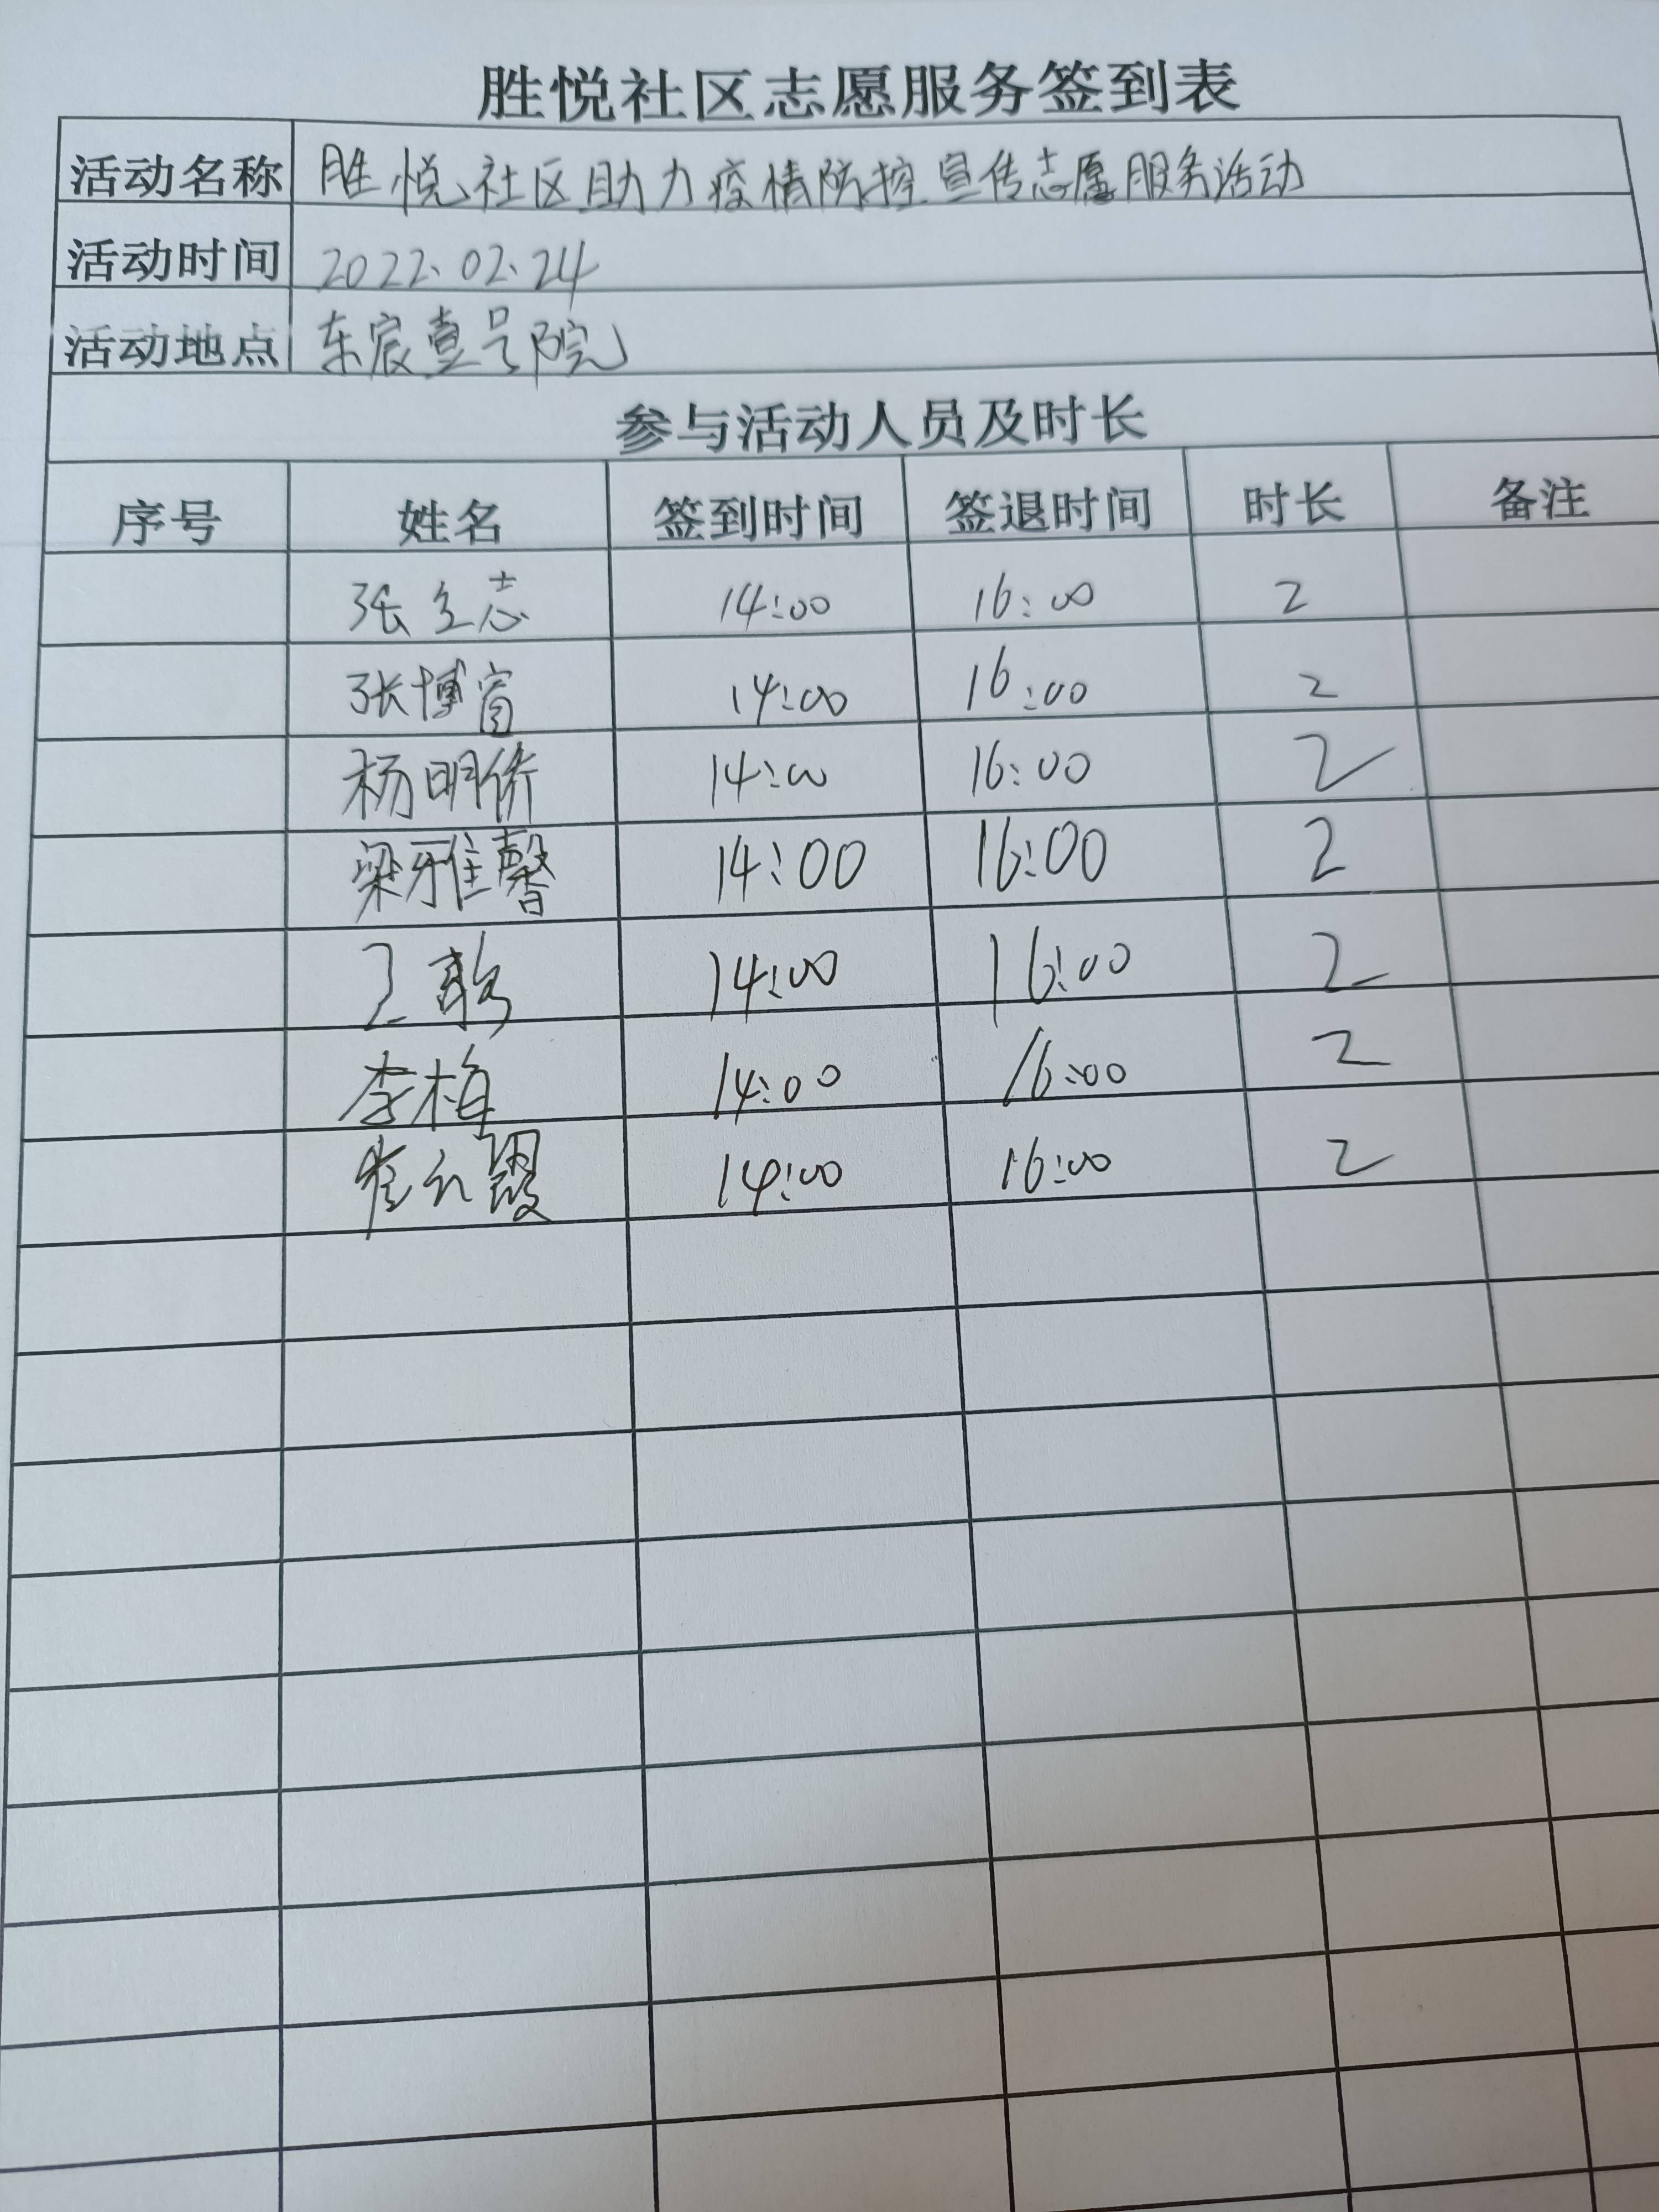 胜悦社区志愿服务签到表
活动名称 胜悦社区助力疫情防控宣传志愿服务活动
活动时间 2022.02.24
活动地点 东宸壹号院
参与活动人员及时长
序号 姓名 签到时间 签退时间 时长 备注
张立志 14:00 16:00 2
张博 14:00 16:00 2
杨明侨 14:00 16:00 2
梁雅馨 14:00 16:00 2
王 14:00 16:00 2
李梅 14:00 16:00 2
崔红霞 14:00 16:00 2